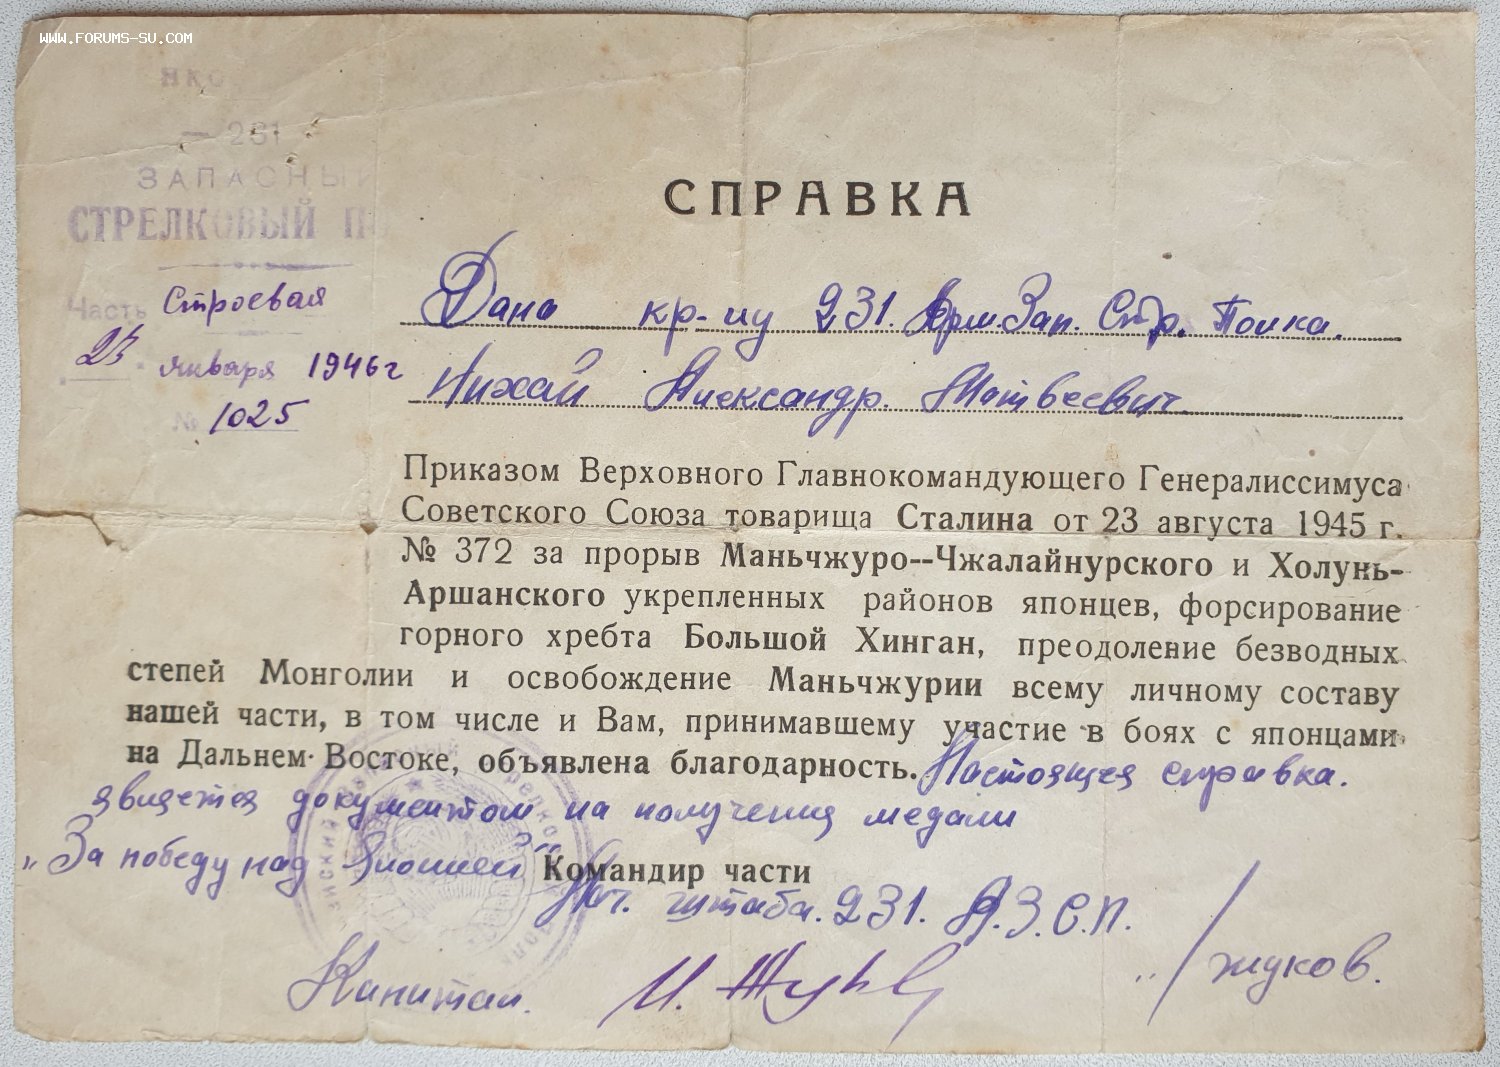 WWW.FORUMS-SU.COM
НКО
— 231
ЗАПАСНЫЙ
СТРЕЛКОВЫЙ ПО
Часть Строевая
23 января 1946 г
№ 1025
СПРАВКА
Дана кр-цу 231. Арм. Зап. Стр. Полка.
Михай Александр. Матвеевич.
Приказом Верховного Главнокомандующего Генералиссимуса
Советского Союза товарища Сталина от 23 августа 1945 г.
№ 372 за прорыв Маньчжуро--Чжалайнурского и Холунь-
Аршанского укрепленных районов японцев, форсирование
горного хребта Большой Хинган, преодоление безводных
степей Монголии и освобождение Маньчжурии всему личному составу
нашей части, в том числе и Вам, принимавшему участие в боях с японцами
на Дальнем Востоке, объявлена благодарность. Настоящая справка.
является документом на получения медали
„За победу над Японией“
Командир части
Нач. штаба. 231. А.З.С.П.
Капитан. И. Жуков / Жуков.